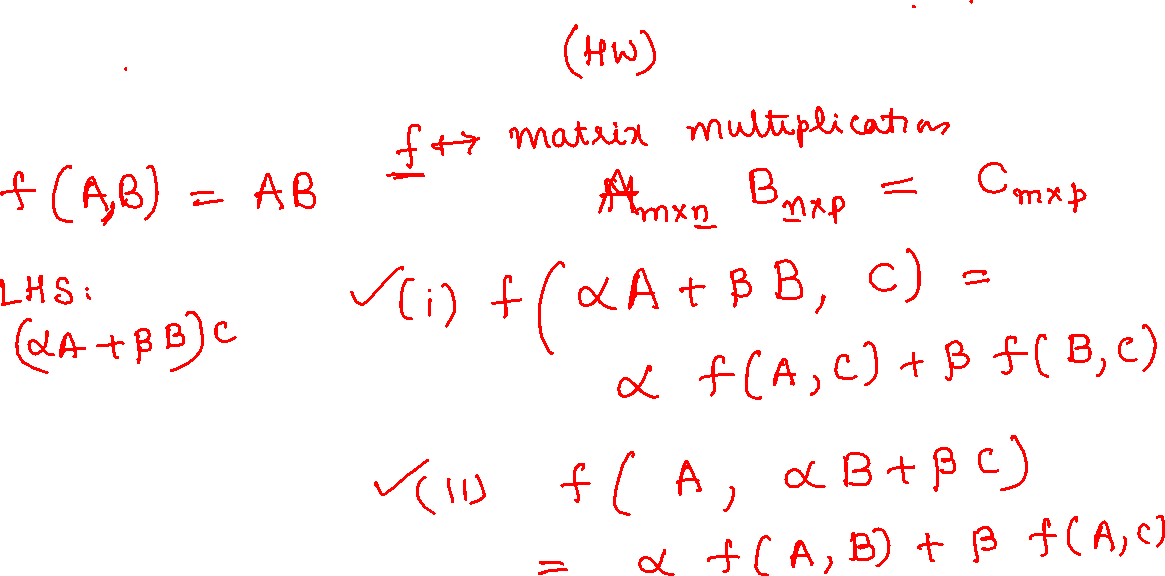 (HW)
f ↔ matrix multiplication
f(A,B) = AB
A_{m×n} B_{n×p} = C_{m×p}
LHS:
(αA + βB)C
✓(i) f(αA + βB, C) =
α f(A, C) + β f(B, C)
✓(ii) f(A, αB + βC)
= α f(A, B) + β f(A, C)